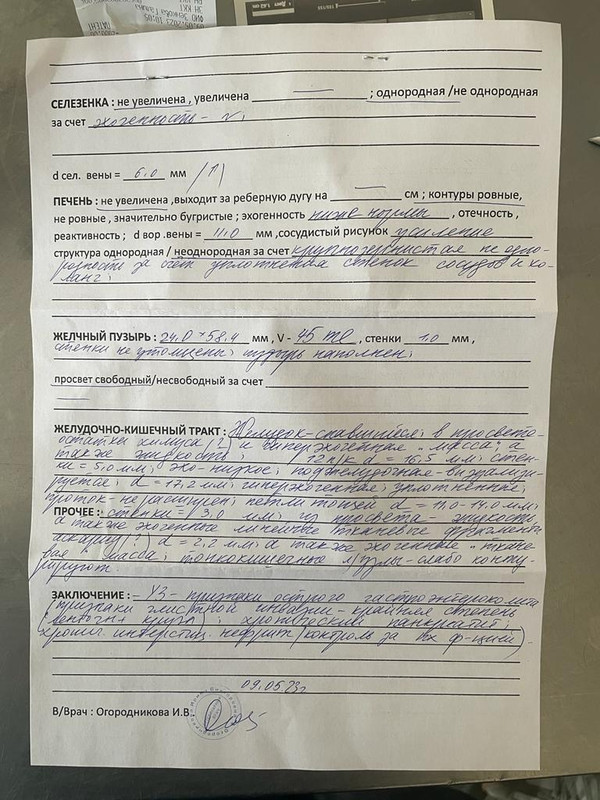 СЕЛЕЗЕНКА : не увеличена , увеличена ; однородная /не однородная
за счет эхогенность - N ;
d сел. вены = 6.0 мм /↑/
ПЕЧЕНЬ : не увеличена ,выходит за реберную дугу на см ; контуры ровные,
не ровные , значительно бугристые ; эхогенность ниже нормы , отечность ,
реактивность ; d вор .вены = 11.0 мм ,сосудистый рисунок усиление
структура однородная / неоднородная за счет крупнозернистая не одно-
родности за счет уплотнения стенок сосудов и хо-
ланг ;
ЖЕЛЧНЫЙ ПУЗЫРЬ : 24.0 * 58.4 мм , V - 45 ml , стенки 1.0 мм ,
стенки не утолщены; пузырь наполнен;
просвет свободный/несвободный за счет
ЖЕЛУДОЧНО-КИШЕЧНЫЙ ТРАКТ : Желудок-спавшийся; в просвете-
остатки химуса (?) и гиперэхогенная "масса"; а
также жидкость ; 12 п/к d = 16,5 мм; стен-
ки = 5.0 мм; эхо-низкое; поджелудочная-визуализи-
руется; d = 17,2 мм; гиперэхогенная; уплотненная;
проток-не расширен; петли тощей d = 11.0-14.0 мм;
ПРОЧЕЕ : стенки = 3.0 мм; из просвета - жидкость
а также эхогенные линейные тканевые фрагменты
аскарид (?) d = 2.2 мм; а также эхогенные "ткане-
вая" масса; тонкокишечные л/узлы-слабо конту-
рируют.
ЗАКЛЮЧЕНИЕ : - УЗ-признаки острого гастроэнтероколита
(признаки глистной инвазии - крайняя степень
); хронический панкреатит;
хронич. интерстиц. нефрит (контроль за ф-цией).
09.05.23г
В/Врач : Огородникова И.В.